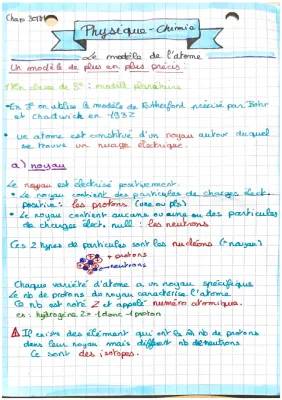 Physique-Chimie
Le modèle de l'atome
Un modèle de plus en plus précis:
En classe de 3e: modèle planétaire
En 3e on utilise le modèle de Rutherford précisé par Bohr
et Chadwick en 1932
un atome est constitué d'un noyau autour duquel
se trouve un nuage électrique.
a) noyau
Le noyau est électrisé positivement.
Le noyau contient des particules de charges élect.
positive: les protons (une ou pls)
Le noyau contient aucune ou une ou des particules
de charges élect. null: les neutrons
Ces 2 types de particules sont les nucléons (=noyau)
+ protons
neutrons
Chaque variété d'atome a un noyau spécifique
Le nb de protons du noyau caractérise l'atome
Ce nb est noté Z et appelé numéro atomique.
ex: hydrogène Z=1 donc 1 proton
Il existe des élément qui ont le m̂ nb de protons
dans leur noyau mais different nb de neutrons
Ce sont des isotopes.